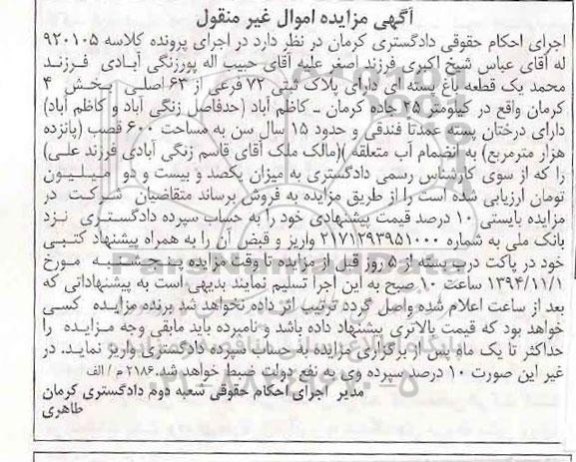 آگهی مزایده اموال غیر منقول
اجرای احکام حقوقی دادگستری کرمان در نظر دارد در اجرای پرونده کلاسه ۹۲۰۱۰۵
له آقای عباس شیخ اکبری فرزند اصغر علیه آقای حبیب اله پورزنگی آبادی فرزند
محمد یک قطعه باغ پسته ای دارای پلاک ثبتی ۷۲ فرعی از ۶۳ اصلی بخش ۴
کرمان واقع در کیلومتر ۲۵ جاده کرمان ـ کاظم آباد (حدفاصل زنگی آباد و کاظم آباد)
دارای درختان پسته عمدتا فندقی و حدود ۱۵ سال سن به مساحت ۶۰۰ قصب (پانزده
هزار مترمربع) به انضمام آب متعلقه )(مالک ملک آقای قاسم زنگی آبادی فرزند علی)
را که از سوی کارشناس رسمی دادگستری به میزان یکصد و بیست و دو میلیون
تومان ارزیابی شده است را از طریق مزایده به فروش برساند متقاضیان شرکت در
مزایده بایستی ۱۰ درصد قیمت پیشنهادی خود را به حساب سپرده دادگستری نزد
بانک ملی به شماره ۲۱۷۱۲۹۳۹۵۱۰۰۰ واریز و قبض آن را به همراه پیشنهاد کتبی
خود در پاکت درب بسته از ۵ روز قبل از مزایده تا وقت مزایده پنجشنبه مورخ
۱۳۹۴/۱۱/۱ ساعت ۱۰ صبح به این اجرا تسلیم نمایند بدیهی است به پیشنهاداتی که
بعد از ساعت اعلام شده واصل گردد ترتیب اثر داده نخواهد شد برنده مزایده کسی
خواهد بود که قیمت بالاتری پیشنهاد داده باشد و نامبرده باید مابقی وجه مزایده را
حداکثر تا یک ماه پس از برگزاری مزایده به حساب سپرده دادگستری واریز نماید. در
غیر این صورت ۱۰ درصد سپرده وی به نفع دولت ضبط خواهد شد. ۲۱۸۶ م / الف
مدیر اجرای احکام حقوقی شعبه دوم دادگستری کرمان
طاهری